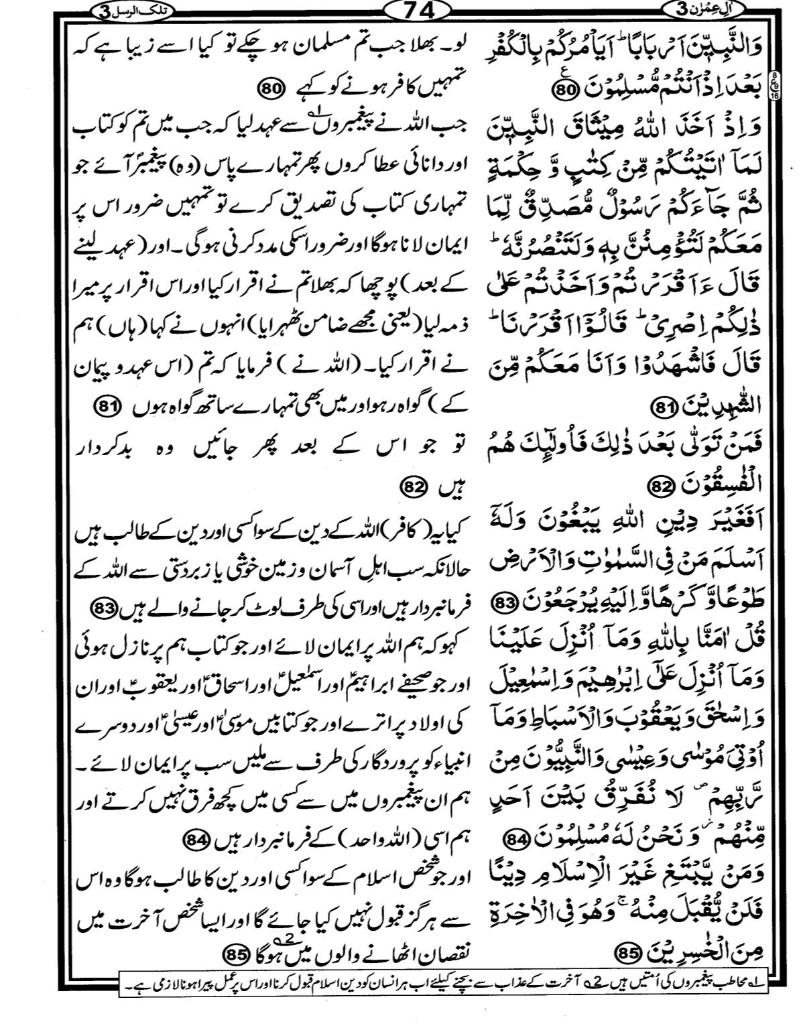 اٰل عِمْرٰن 3
74
تلک الرسل 3
وَالنَّبِیّٖنَ اَرْبَابًا ؕ اَیَاْمُرُكُمْ بِالْكُفْرِ
بَعْدَ اِذْ اَنْتُمْ مُّسْلِمُوْنَ ۠ 80 ع
وَاِذْ اَخَذَ اللّٰهُ مِیْثَاقَ النَّبِیّٖنَ
لَمَاۤ اٰتَیْتُكُمْ مِّنْ كِتٰبٍ وَّ حِكْمَةٍ
ثُمَّ جَآءَكُمْ رَسُوْلٌ مُّصَدِّقٌ لِّمَا
مَعَكُمْ لَتُؤْمِنُنَّ بِهٖ وَلَتَنْصُرُنَّهٗ ؕ
قَالَ ءَاَقْرَرْتُمْ وَاَخَذْتُمْ عَلٰی
ذٰلِكُمْ اِصْرِیْ ؕ قَالُوْۤا اَقْرَرْنَا ؕ
قَالَ فَاشْهَدُوْا وَاَنَا مَعَكُمْ مِّنَ
الشّٰهِدِیْنَ 81
فَمَنْ تَوَلّٰی بَعْدَ ذٰلِكَ فَاُولٰٓئِكَ هُمُ
الْفٰسِقُوْنَ 82
اَفَغَیْرَ دِیْنِ اللّٰهِ یَبْغُوْنَ وَلَهٗۤ
اَسْلَمَ مَنْ فِی السَّمٰوٰتِ وَالْاَرْضِ
طَوْعًا وَّكَرْهًا وَّاِلَیْهِ یُرْجَعُوْنَ 83
قُلْ اٰمَنَّا بِاللّٰهِ وَمَاۤ اُنْزِلَ عَلَیْنَا
وَمَاۤ اُنْزِلَ عَلٰۤی اِبْرٰهِیْمَ وَاِسْمٰعِیْلَ
وَاِسْحٰقَ وَیَعْقُوْبَ وَالْاَسْبَاطِ وَمَاۤ
اُوْتِیَ مُوْسٰی وَعِیْسٰی وَالنَّبِیُّوْنَ مِنْ
رَّبِّهِمْ ۪ لَا نُفَرِّقُ بَیْنَ اَحَدٍ
مِّنْهُمْ ؗ وَنَحْنُ لَهٗ مُسْلِمُوْنَ 84
وَمَنْ یَّبْتَغِ غَیْرَ الْاِسْلَامِ دِیْنًا
فَلَنْ یُّقْبَلَ مِنْهُ ۚ وَهُوَ فِی الْاٰخِرَةِ
مِنَ الْخٰسِرِیْنَ 85
لو۔ بھلا جب تم مسلمان ہو چکے تو کیا اسے زیبا ہے کہ
تمہیں کافر ہونے کو کہے 80
جب اللہ نے پیغمبروں ؂1 سے عہد لیا کہ جب میں تم کو کتاب
اور دانائی عطا کروں پھر تمہارے پاس (وہ) پیغمبرؐ آئے جو
تمہاری کتاب کی تصدیق کرے تو تمہیں ضرور اس پر
ایمان لانا ہوگا اور ضرور اسکی مدد کرنی ہوگی ۔اور (عہد لینے
کے بعد) پوچھا کہ بھلا تم نے اقرار کیا اور اس اقرار پر میرا
ذمہ لیا (یعنی مجھے ضامن ٹھہرایا) انہوں نے کہا (ہاں) ہم
نے اقرار کیا۔ (اللہ نے) فرمایا کہ تم (اس عہد و پیمان
کے) گواہ رہو اور میں بھی تمہارے ساتھ گواہ ہوں 81
تو جو اس کے بعد پھر جائیں وہ بدکردار
ہیں 82
کیا یہ (کافر) اللہ کے دین کے سوا کسی اور دین کے طالب ہیں
حالانکہ سب اہل آسمان و زمین خوشی یا زبردستی سے اللہ کے
فرمانبردار ہیں اور اسی کی طرف لوٹ کر جانے والے ہیں 83
کہو کہ ہم اللہ پر ایمان لائے اور جو کتاب ہم پر نازل ہوئی
اور جو صحیفے ابراہیمؑ اور اسمٰعیلؑ اور اسحاقؑ اور یعقوبؑ اور ان
کی اولاد پر اترے اور جو کتابیں موسٰیؑ اور عیسٰیؑ اور دوسرے
انبیاء کو پروردگار کی طرف سے ملیں سب پر ایمان لائے ۔
ہم ان پیغمبروں میں سے کسی میں کچھ فرق نہیں کرتے اور
ہم اسی (اللہ واحد) کے فرمانبردار ہیں 84
اور جو شخص اسلام کے سوا کسی اور دین کا طالب ہوگا وہ اس
سے ہرگز قبول نہیں کیا جائے گا اور ایسا شخص آخرت میں
نقصان اٹھانے والوں میں ؂2 ہوگا 85
؂1 مخاطب پیغمبروں کی اُمتیں ہیں ؂2 آخرت کے عذاب سے بچنے کیلئے اب ہر انسان کو دین اسلام قبول کرنا اور اس پر عمل پیرا ہونا لازمی ہے۔